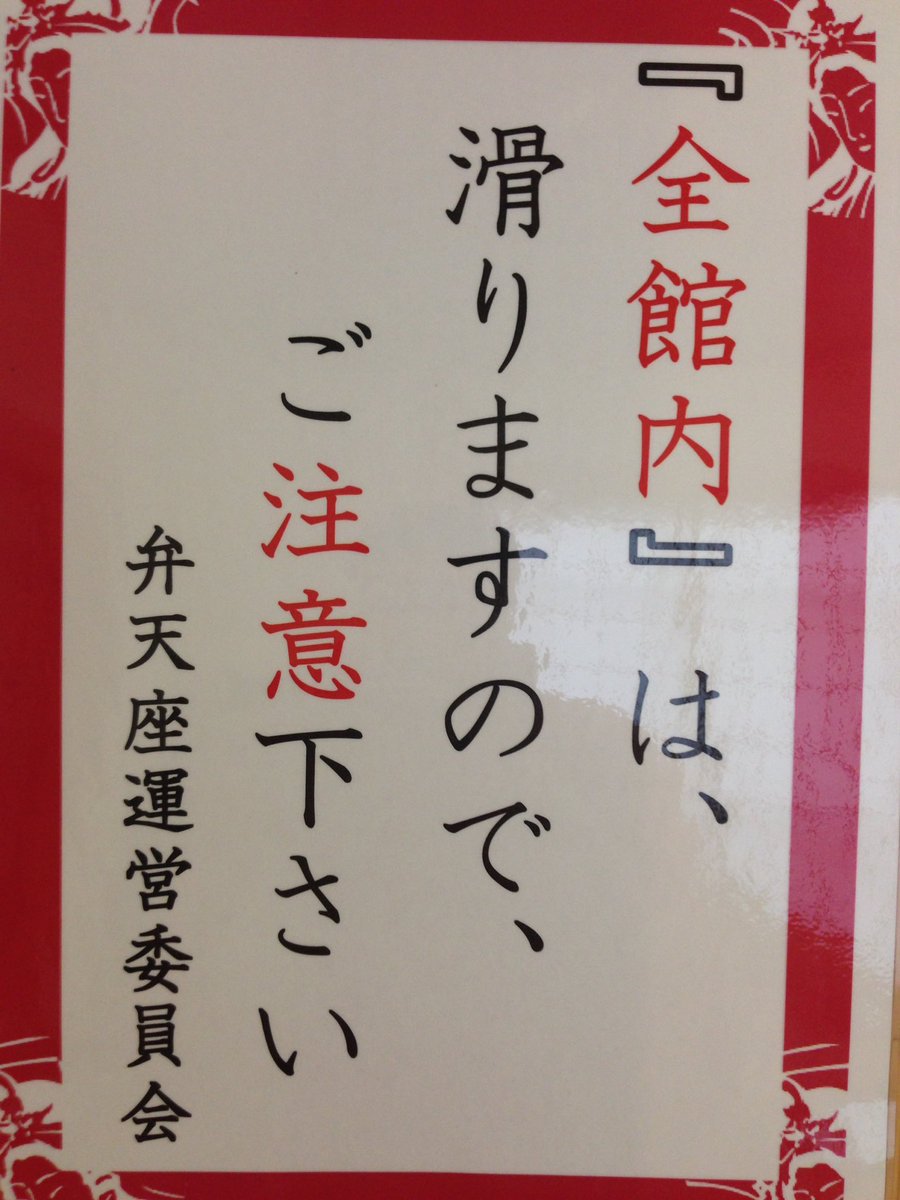 『全館内』は、
滑りますので、
ご注意下さい
弁天座運営委員会